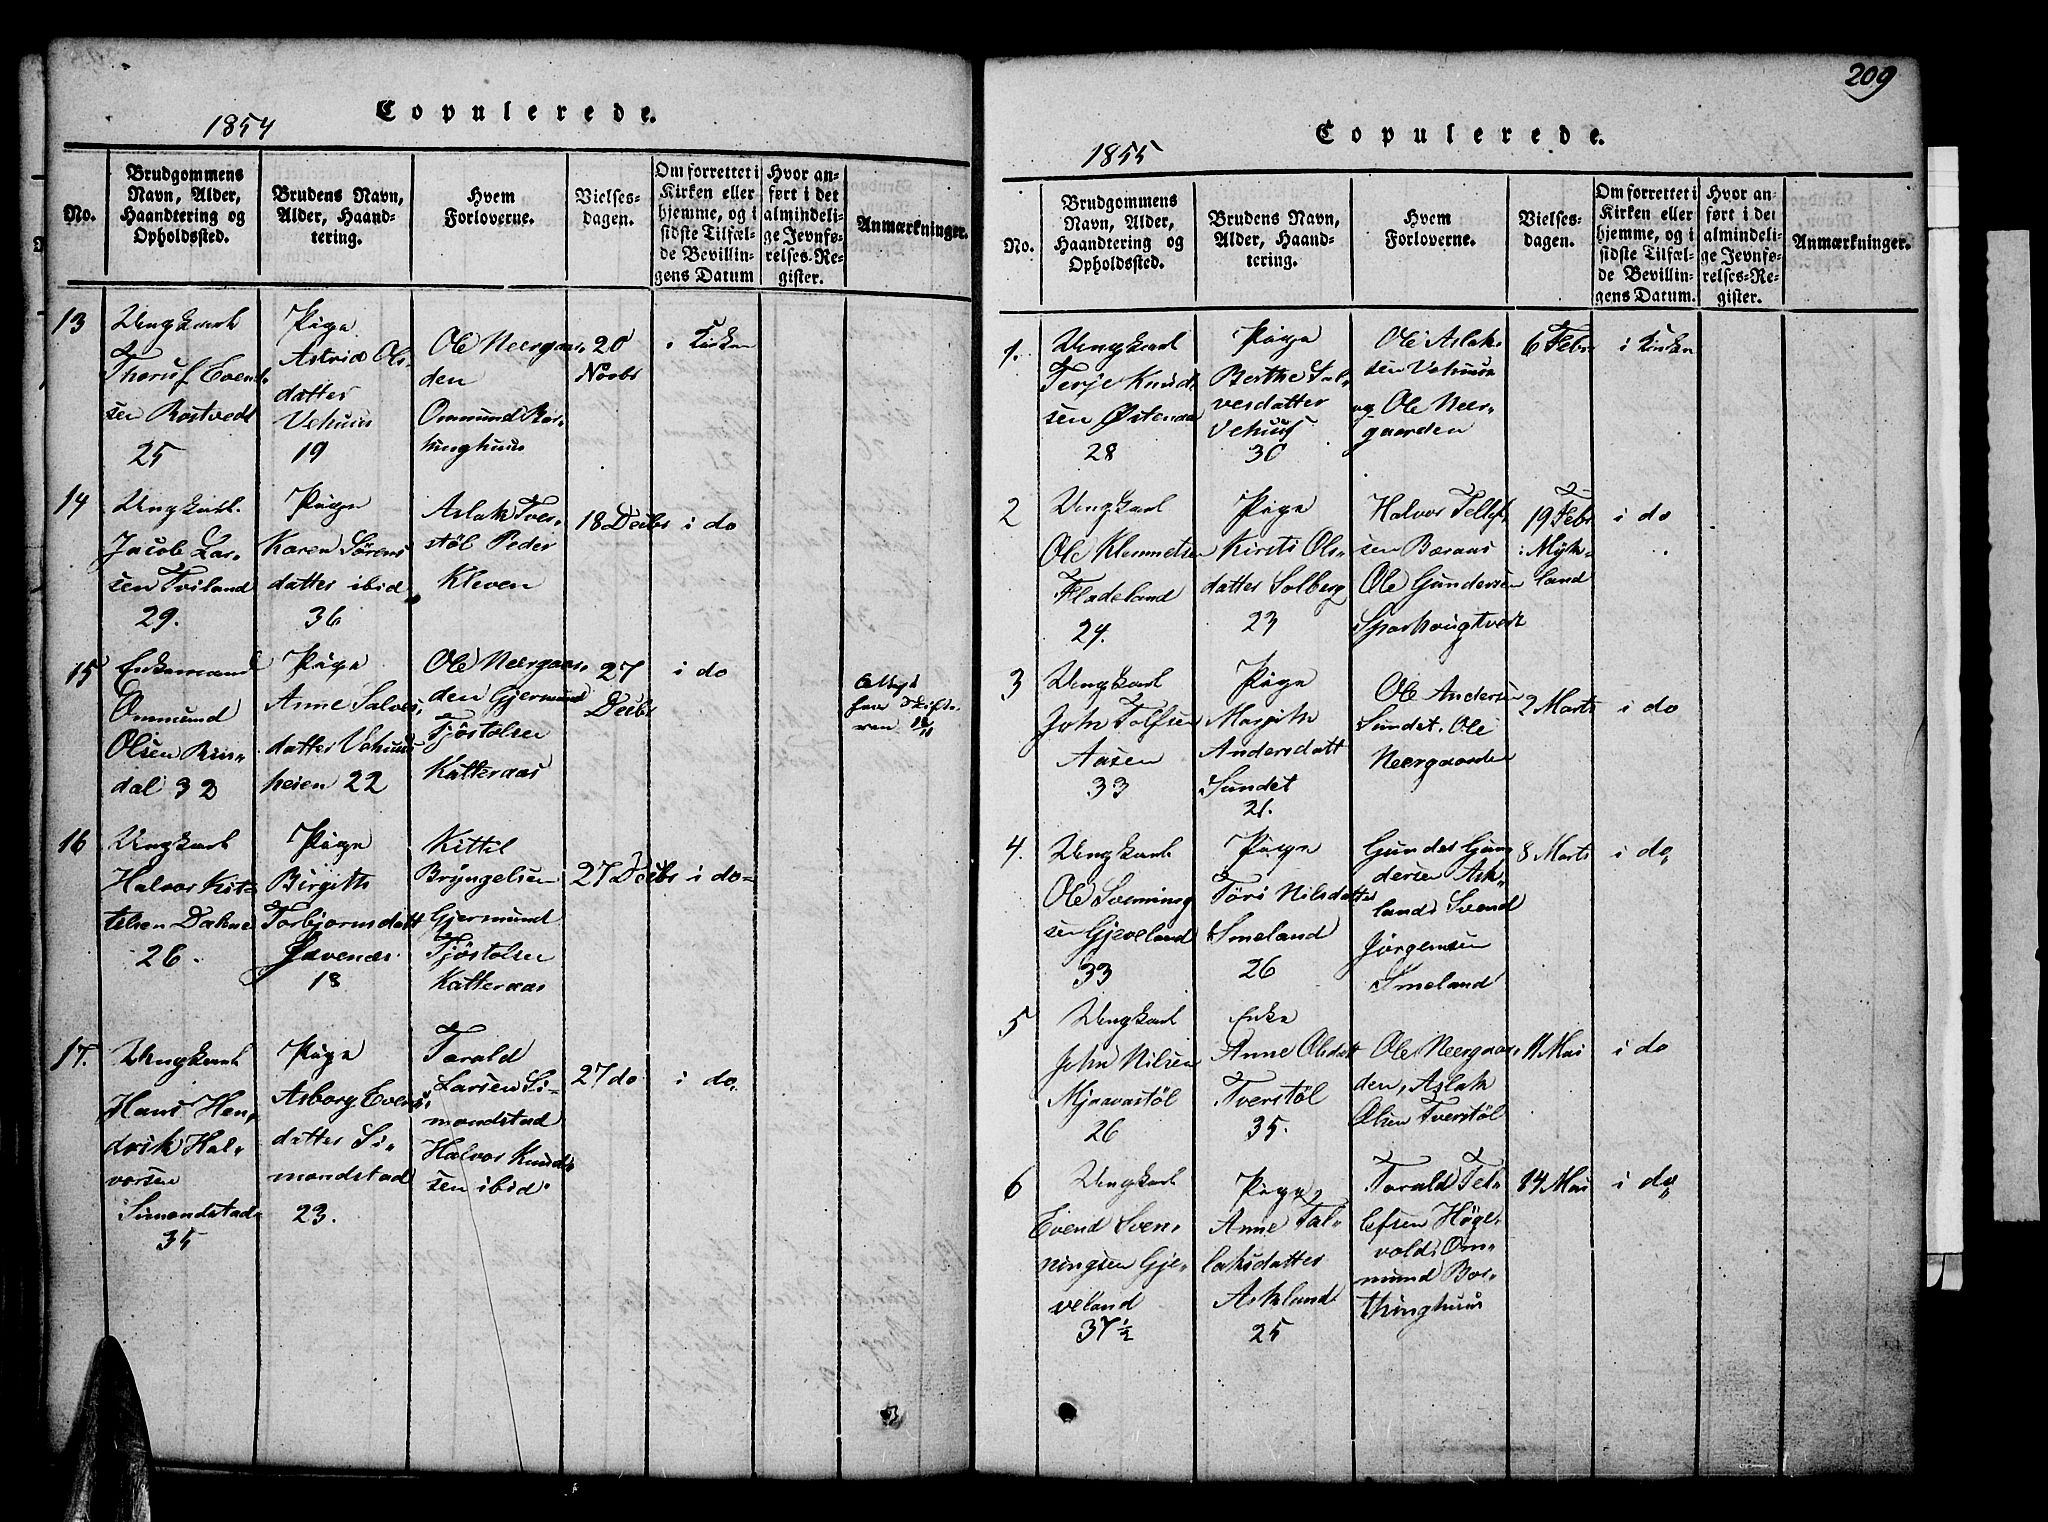 209
Copulerede.
1854
No.
Brudgommens
Navn, Alder,
Haandtering og
Opholdssted.
Brudens Navn,
Alder, Haand-
tering.
Hvem
Forloverne.
Vielses-
dagen.
Om forrettet i
Kirken eller
hjemme, og i
sidste Tilfæl-
de Bevillin-
gens Datum
Hvor an-
ført i det
almindeli-
ge Jevnfø-
relses-Re-
gister.
Anmærkninger.
13
Ungkarl
Thoruf Evend-
sen Rostvedt
25
Pige
Astrid Ols-
datter
Vehuus
19
Ole Neergaar-
den
Ommund Bor-
thinghuus
20
Novbr
i Kirken
14
Ungkarl
Jacob Lar-
sen Tviland
29.
Pige
Karen Sörens
datter ibid.
36
Aslak Tver-
stöl Peder
Kleven
18 Decbr
i do
15
Enkemand
Ommund
Olsen Rin-
dal 32
Pige
Anne Salves-
datter Vehuus-
heien 22
Ole Neergaar-
den Gjermund
Tjöstolsen
Katteraas
27
Decbr
i do
16
Ungkarl
Halvor Kit-
telsen Dahne
26.
Pige
Birgith
Torbjornsdatt
Davenæs
18
Kittil
Bryngelsen
Gjermund
Tjöstolsen
Katteraas
27 Decbr
i do
17.
Ungkarl
Hans Hen-
drik Hal-
vorsen
Simondstad
35
Pige
Asborg Evens-
datter Si-
mondstad
23.
Torald
Larsen Si-
mondstad
Halvor Knud-
sen ibid.
27 do
i do
Copulerede.
1855
No.
Brudgommens
Navn, Alder,
Haandtering og
Opholdssted.
Brudens Navn,
Alder, Haand-
tering.
Hvem
Forloverne.
Vielses-
dagen.
Om forrettet i
Kirken eller
hjemme, og i
sidste Tilfæl-
de Bevillin-
gens Datum.
Hvor an-
ført i det
almindeli-
ge Jevnfø-
relses-Re-
gister.
Anmærkninger.
1.
Ungkarl
Terje Knud-
sen Østenaa
28
Pige
Berthe Sal-
vesdatter
Vehuus
30
Ole Aslak
sen Vehuus
og Ole Neer-
gaarden
6 Febr
i Kirken
2
Ungkarl
Ole Klemmetsen
Fladeland
24.
Pige
Kirsti Ols-
datter Solberg
23
Halvor Tellef-
sen Bæraas
Ole Gundersen
Sparhougtvedt
19 Febr
i Myk-
land
i do
3
Ungkarl
John Tolfsen
Aasen
33
Pige
Margith
Andersdatt
Sundet
21.
Ole Andersen
Sundet. Ole
Neergaarden
2 Marts
i do
4.
Ungkarl
Ole Svenning
sen Gjeveland
33
Pige
Töri Nilsdatter
Smeland
26
Gunder Gun
dersen Ask-
land. Svend
Jörgensen
Smeland
8 Marts
i do
5
Ungkarl
John Nilsen
Mjaavastöl
26
Enke
Anne Olsdatt
Tverstöl
35.
Ole Neergaar-
den, Aslak
Olsen Tverstöl
11 Mai
i do
6
Ungkarl
Evend Sven-
ningsen Gje-
veland
37½
Pige
Anne Tal-
laksdatter
Askland
25
Torald Tel-
lefsen Höge-
vold. Om-
mund Bor-
thinghuus
14 Mai
i do